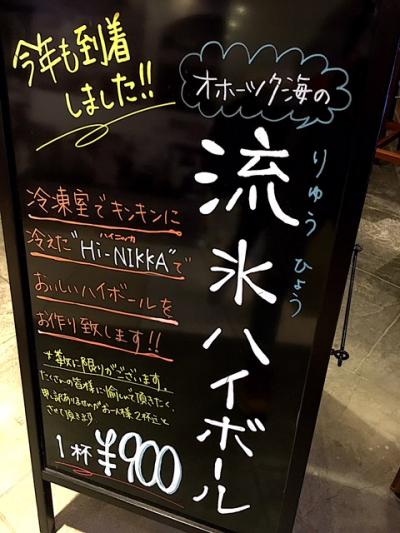 今年も到着
しました!!
オホーツク海の
流氷ハイボール
りゅう ひょう
冷凍室でキンキンに
冷えた"Hi-NIKKA"で
ハイニッカ
おいしいハイボールを
お作り致します!!
*数に限りがございます。
たくさんの皆様に愉しんで頂きたく、
申し訳ありませんがお一人様2杯迄と
させて頂きます
1杯 ¥900